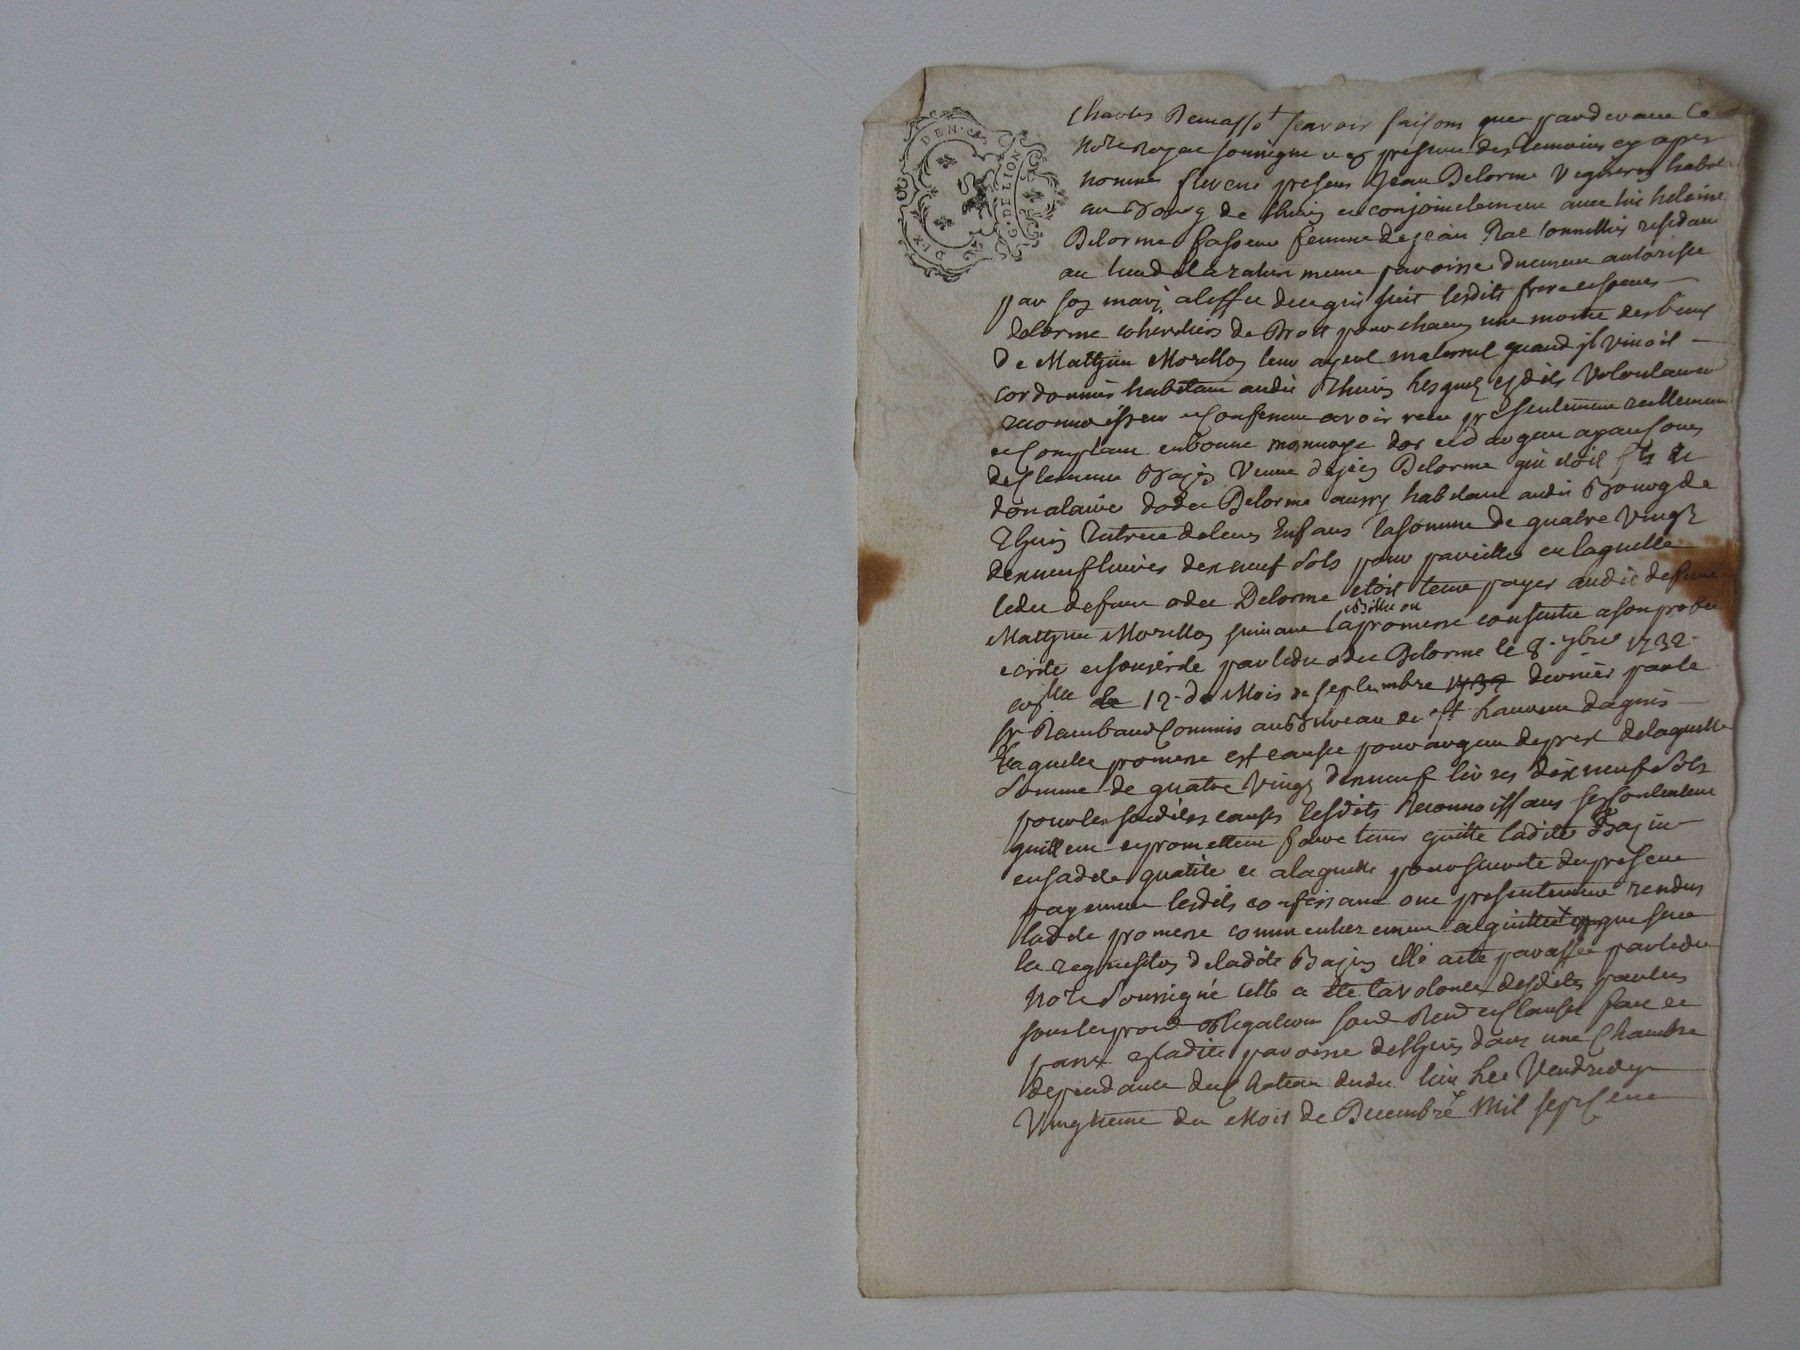 DIX DEN.ers G.D.LION
Charles Demasso scavoir faisons que pardevant le
no.re royal soussigne et en presence des temoins cy apres
nommes furent presens Jean Delorme vigneron habt
au Bourg de Thurin et conjointement avec luy heleine
Delorme sa soeur femme de jean residant
au lieu de la meme paroisse duement autorisée
par son mary a leffet de ce qui suit lesdits frere et soeur
delorme coheritiers de Droit pour chacun une moitié des biens
de Matthieu Morellon leur ayeul maternel quand jl vivoit
cordonnier habitant audit Thurin lesquels de
reconnoissent et confessent avoir receu presentement reellement
et comptant en bonne monnoye dor et d argent ayant cours
de Clemence Bajin veuve de Delorme qui etoit fils et
donataire dodet Delorme aussy habitant audit Bourg de
Thurin tutrice de leurs Enfans la somme de quatre vingt
dix neuf livres dix neuf sols pour pareille en laquelle
ledit defunt odet Delorme etoit tenu payer audit defunt
Matthieu Morellon suivant la promesse consentie a son profit
billet ou
ecrite et signée par ledit odet Delorme le 8. 9bre 1732
le 12. du Mois de septembre 1732 dernier par le
sr Rambaud Commis au Bureau de st
Laquelle promesse est causée pour argent de prest de laquelle
somme de quatre vingt dix neuf livres dix neuf sols
pour les susdites causes lesdits Reconnoissans se contentent
quittent et promettent faire tenir quitte ladite Bajin
en sadite qualité et a laquelle pour sureté du present
payement lesdits confessans ont presentement rendus
ladite promesse comme entierement que sur
la requisition de ladite Bajin elle a eté paraffée par ledit
no.re soussigné telle a eté la volonté desdites parties
sous les obligations soumd Renond et clauses fait et
passé en ladite paroisse de Thurin dans une chambre
dependante du chateau dudit lieu le Vendredy
Vingtieme du Mois de Decembre Mil sept cent